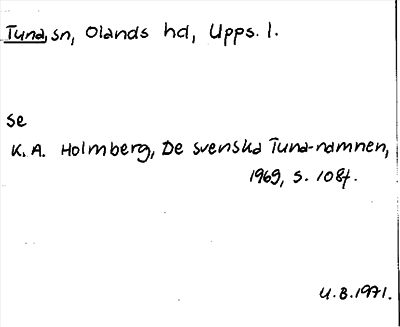 Tuna, sn, Olands hd, Upps. l.
se
K. A. Holmberg, De svenska Tuna-namnen,
1969, s. 108f.
U.B. 1971.